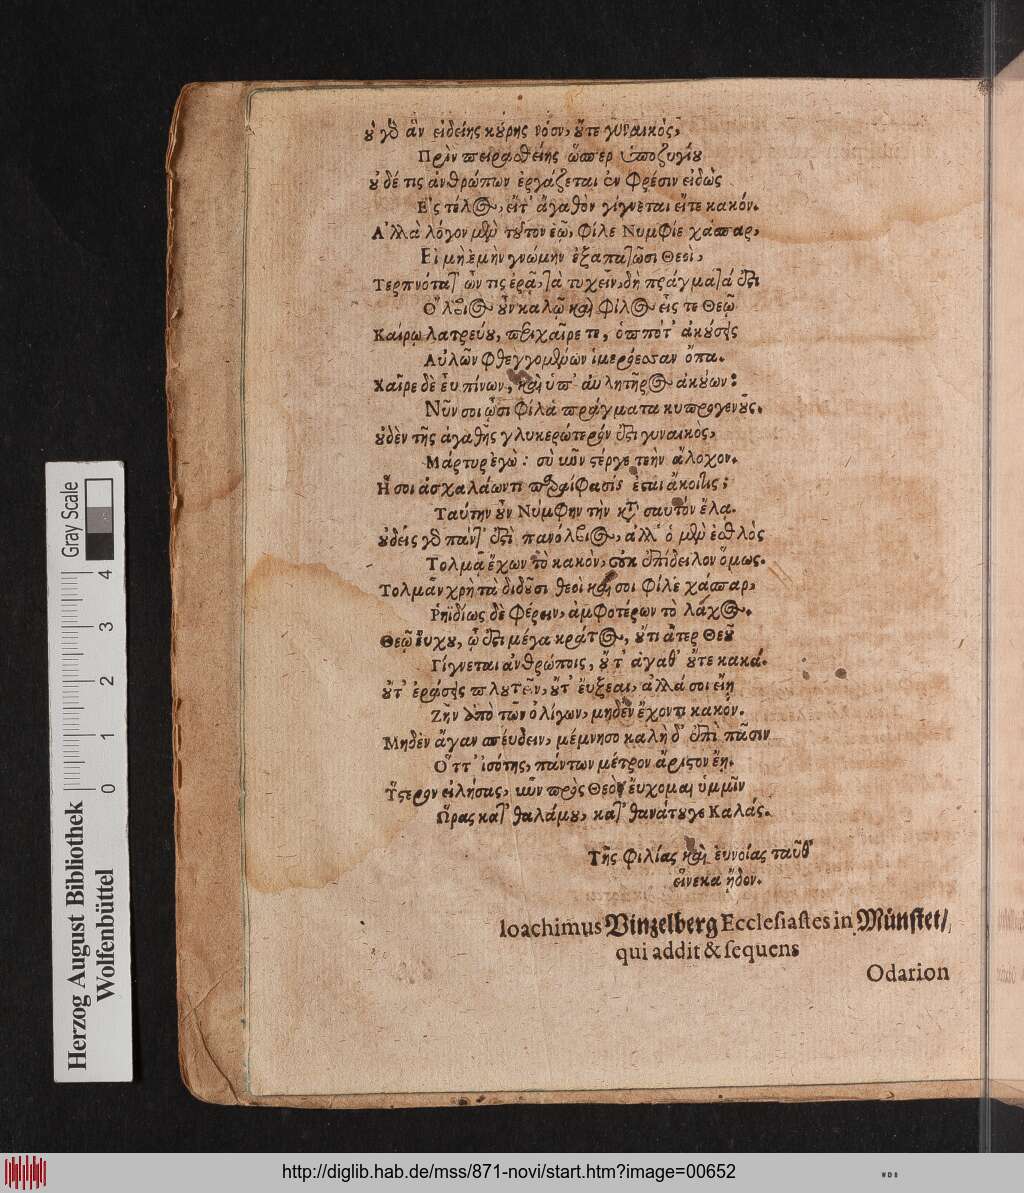 ȣ̓ γὸ ἂν εἰδείης κȣ́ρης νόον, ȣ̓́τε γυναικὸς,
Πρὶν πειραθείης ὥσπερ ὑποζυγίȣ
ȣ̓δέ τις ἀνθρώπων ἐργάζεται ἐν φρέσιν εἰδὼς
Ἐς τέλος, εἴτ' ἄγαθὸν γίγνεται εἴτε κακόν.
Ἀλλὰ λόγον μὲν τȣ͂τον ἐῶ, φίλε Νυμφίε χάσπαρ,
Εἰ μὴ ἐμὴν γνώμην ἐξαπατῶσι Θεοὶ,
Τερπνότατ' ὧν τις ἐρᾷ, τὰ τυχεῖν, δὴ πράγματά ἐστι
Ὄλβιος ȣ̓͂ν καλῷ καὶ φίλος εἶς τε Θεῷ
Καίρῳ λατρεύȣ, περιχαῖρε τε, ὁππότ' ἀκȣ́σῃς
Αὐλῶν φθεγγομένων ἱμερόεσσαν ὄπα.
Χαῖρε δὲ εὖ πίνων, καὶ ὑπ' αὐλητῆρος ἀκȣ́ων:
Νῦν σοι ὦσι φίλα πράγματα κυπρογενȣ͂ς.
ȣ̓δὲν τῆς ἀγαθῆς γλυκερώτερόν ἐστι γυναικὸς,
Μάρτυρ ἐγὼ: σὺ νῦν στέργε τεὴν ἄλοχον.
Ἦ σοι ἀσχαλάωντι πρόφασις ἔσται ἄκοιτις;
Ταύτην ȣ̓͂ν Νύμφην τὴν κτ σαυτὸν ἔλα.
ȣ̓δείς γὸ πάντ' ἐστὶ πανόλβιος, ἀλλ' ὁ μὲν ἐσθλὸς
Τολμᾷ ἔχων τὸ κακὸν, σȣκ ἐπίδειλον ὅμως.
Τολμᾶν χρὴ τὰ διδȣ͂σι θεοὶ καὶ σοι φίλε χάσπαρ,
Ῥηϊδίως δὲ φέρειν, ἀμφοτέρων τὸ λάχος.
Θεῷ εὔχȣ, ᾧ ἐστι μέγα κράτος, ȣ̓́τι ἄτερ Θεȣ͂
Γίγνεται ἀνθρώποις, ȣ̓́τ' ἀγαθ' ȣ̓́τε κακά.
ȣ̓́τ' ἐράσῃς πλȣτεῖν, ȣ̓́τ' ἔυξεαι, ἀλλά σοι εἴη
Ζῆν ἀπὸ τῶν ὀλίγων, μηδὲν ἔχοντι κακόν.
Μηδὲν ἄγαν σπέυδειν, μέμνησο καλὴ δ' ἐπὶ πᾶσιν
Ὅττ' ἰσότης, πάντων μέτρον ἄριστον ἔῃ.
Ὕστερον εἰλήσας, νῦν πρὸς Θεὸν ἔυχομαι ὑμμῖν
Ὥρας κατ' θαλάμȣ, κατ' θανάτȣγε Καλάς.
Τῆς φιλίας καὶ ἐυνοίας ταῦθ'
εἵνεκα ᾖδον.
Ioachimus Vinzelberg Ecclesiastes in Münster/
qui addit & sequens
Odarion
Herzog August Bibliothek
Wolfenbüttel
Gray Scale
0 1 2 3 4
http://diglib.hab.de/mss/871-novi/start.htm?image=00652